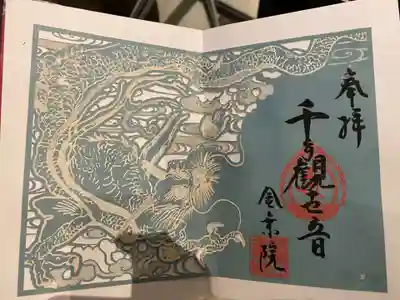 奉拝
千手観世音
金京院